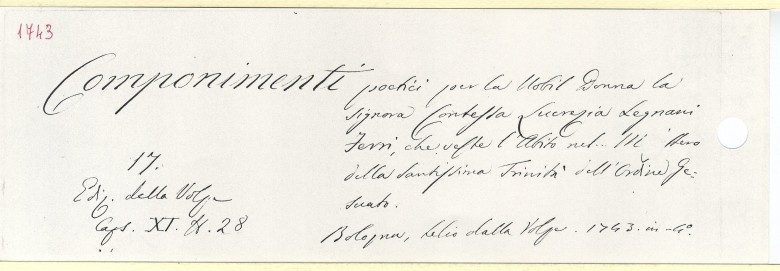 1743
Componimenti poetici per la Nobil Donna la
Signora Contessa Lucrezia Legnani
Ferri, che veste l'Abito nel... M stero
della Santissima Trinità dell'Ordine Ge-
suato.
Bologna, Lelio dalla Volpe. 1743. in-4°.
17.
Ediz. della Volpe
Caps. XI. N. 28